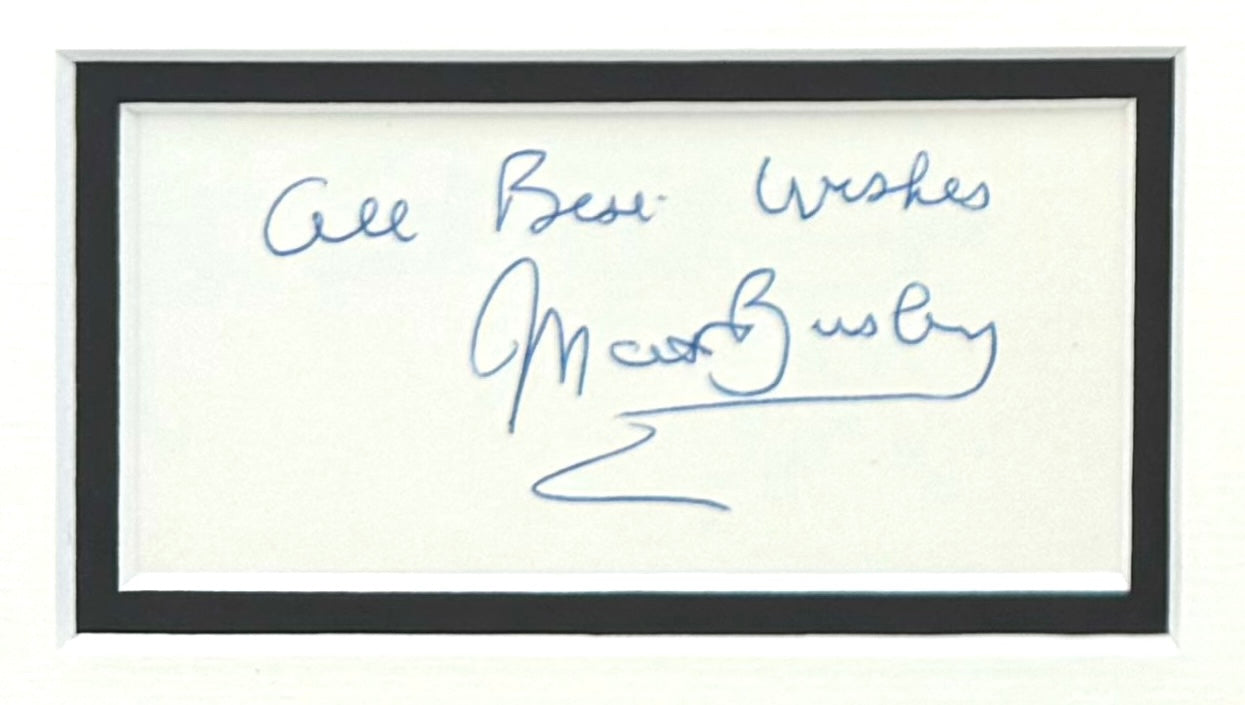 All Best Wishes
Matt Busby